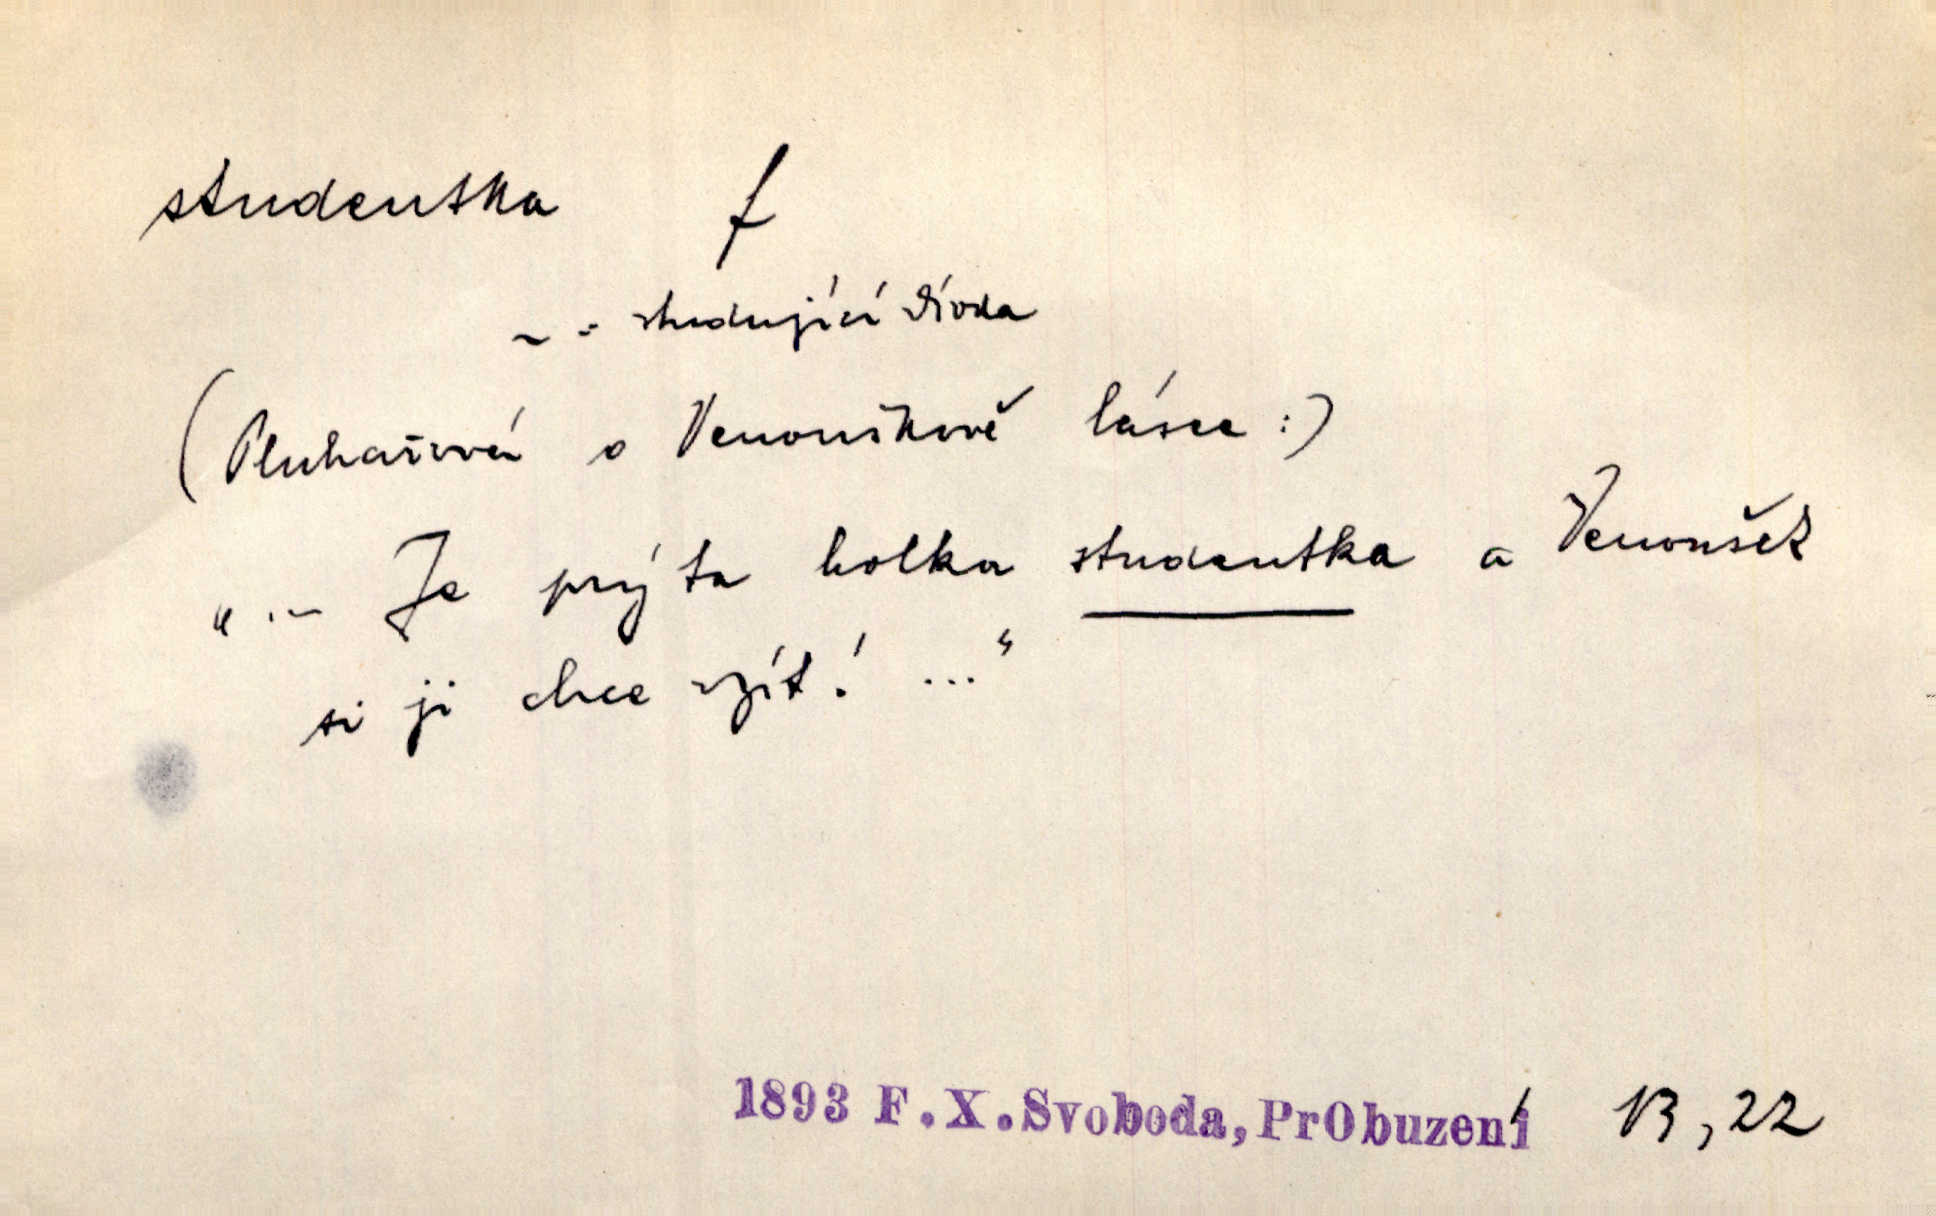 studentka f
~ = studující
(Pluhařová o Venouškově lásce :)
„ ... Je prý ta holka studentka a Venoušek
si ji chce vzít! ..."
1893 F.X.Svoboda, PrObuzení 13, 22